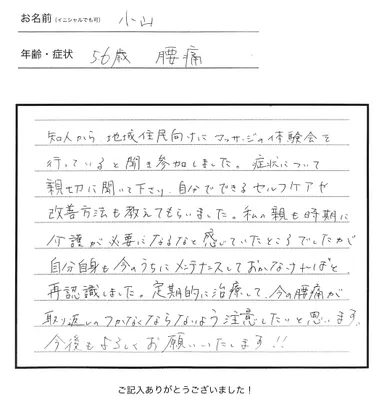 お名前（イニシャルでも可） 小山
年齢・症状 56歳 腰痛
知人から地域住民向けにマッサージの体験会を
行っていると聞き参加しました。症状について
親切に聞いて下さり、自分でできるセルフケアや
改善方法も教えてもらいました。私の親も時期に
介護が必要になるなと感じていたところでしたが
自分自身も今のうちにメンテナンスしておかなければと
再認識しました。定期的に治療して、今の腰痛が
取り返しのつかなくならないよう注意したいと思います。
今後もよろしくお願いいたします!!
ご記入ありがとうございました！